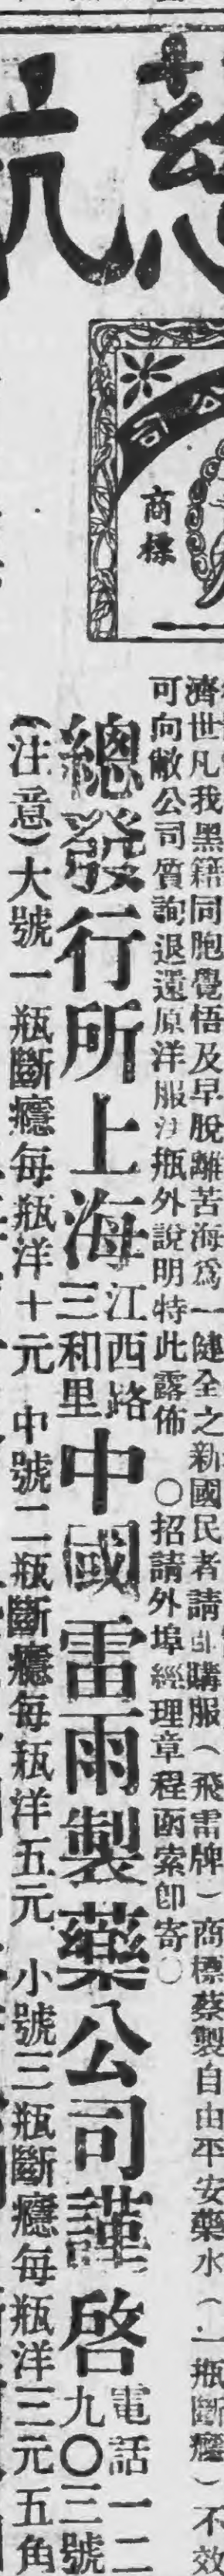 慈航
公司
商標
濟世凡我黑籍同胞覺悟及早脫離苦海爲一健全之新國民者請卽購服(飛雷牌)商標蔡製自由平安藥水(一瓶斷癮)不效
可向敝公司質詢退還原洋服法瓶外說明特此露佈 ○招請外埠經理章程函索卽寄○
總發行所上海江西路三和里中國雷雨製藥公司謹啓電話一二九〇三號
(注意)大號一瓶斷癮每瓶洋十元 中號二瓶斷癮每瓶洋五元 小號三瓶斷癮每瓶洋三元五角